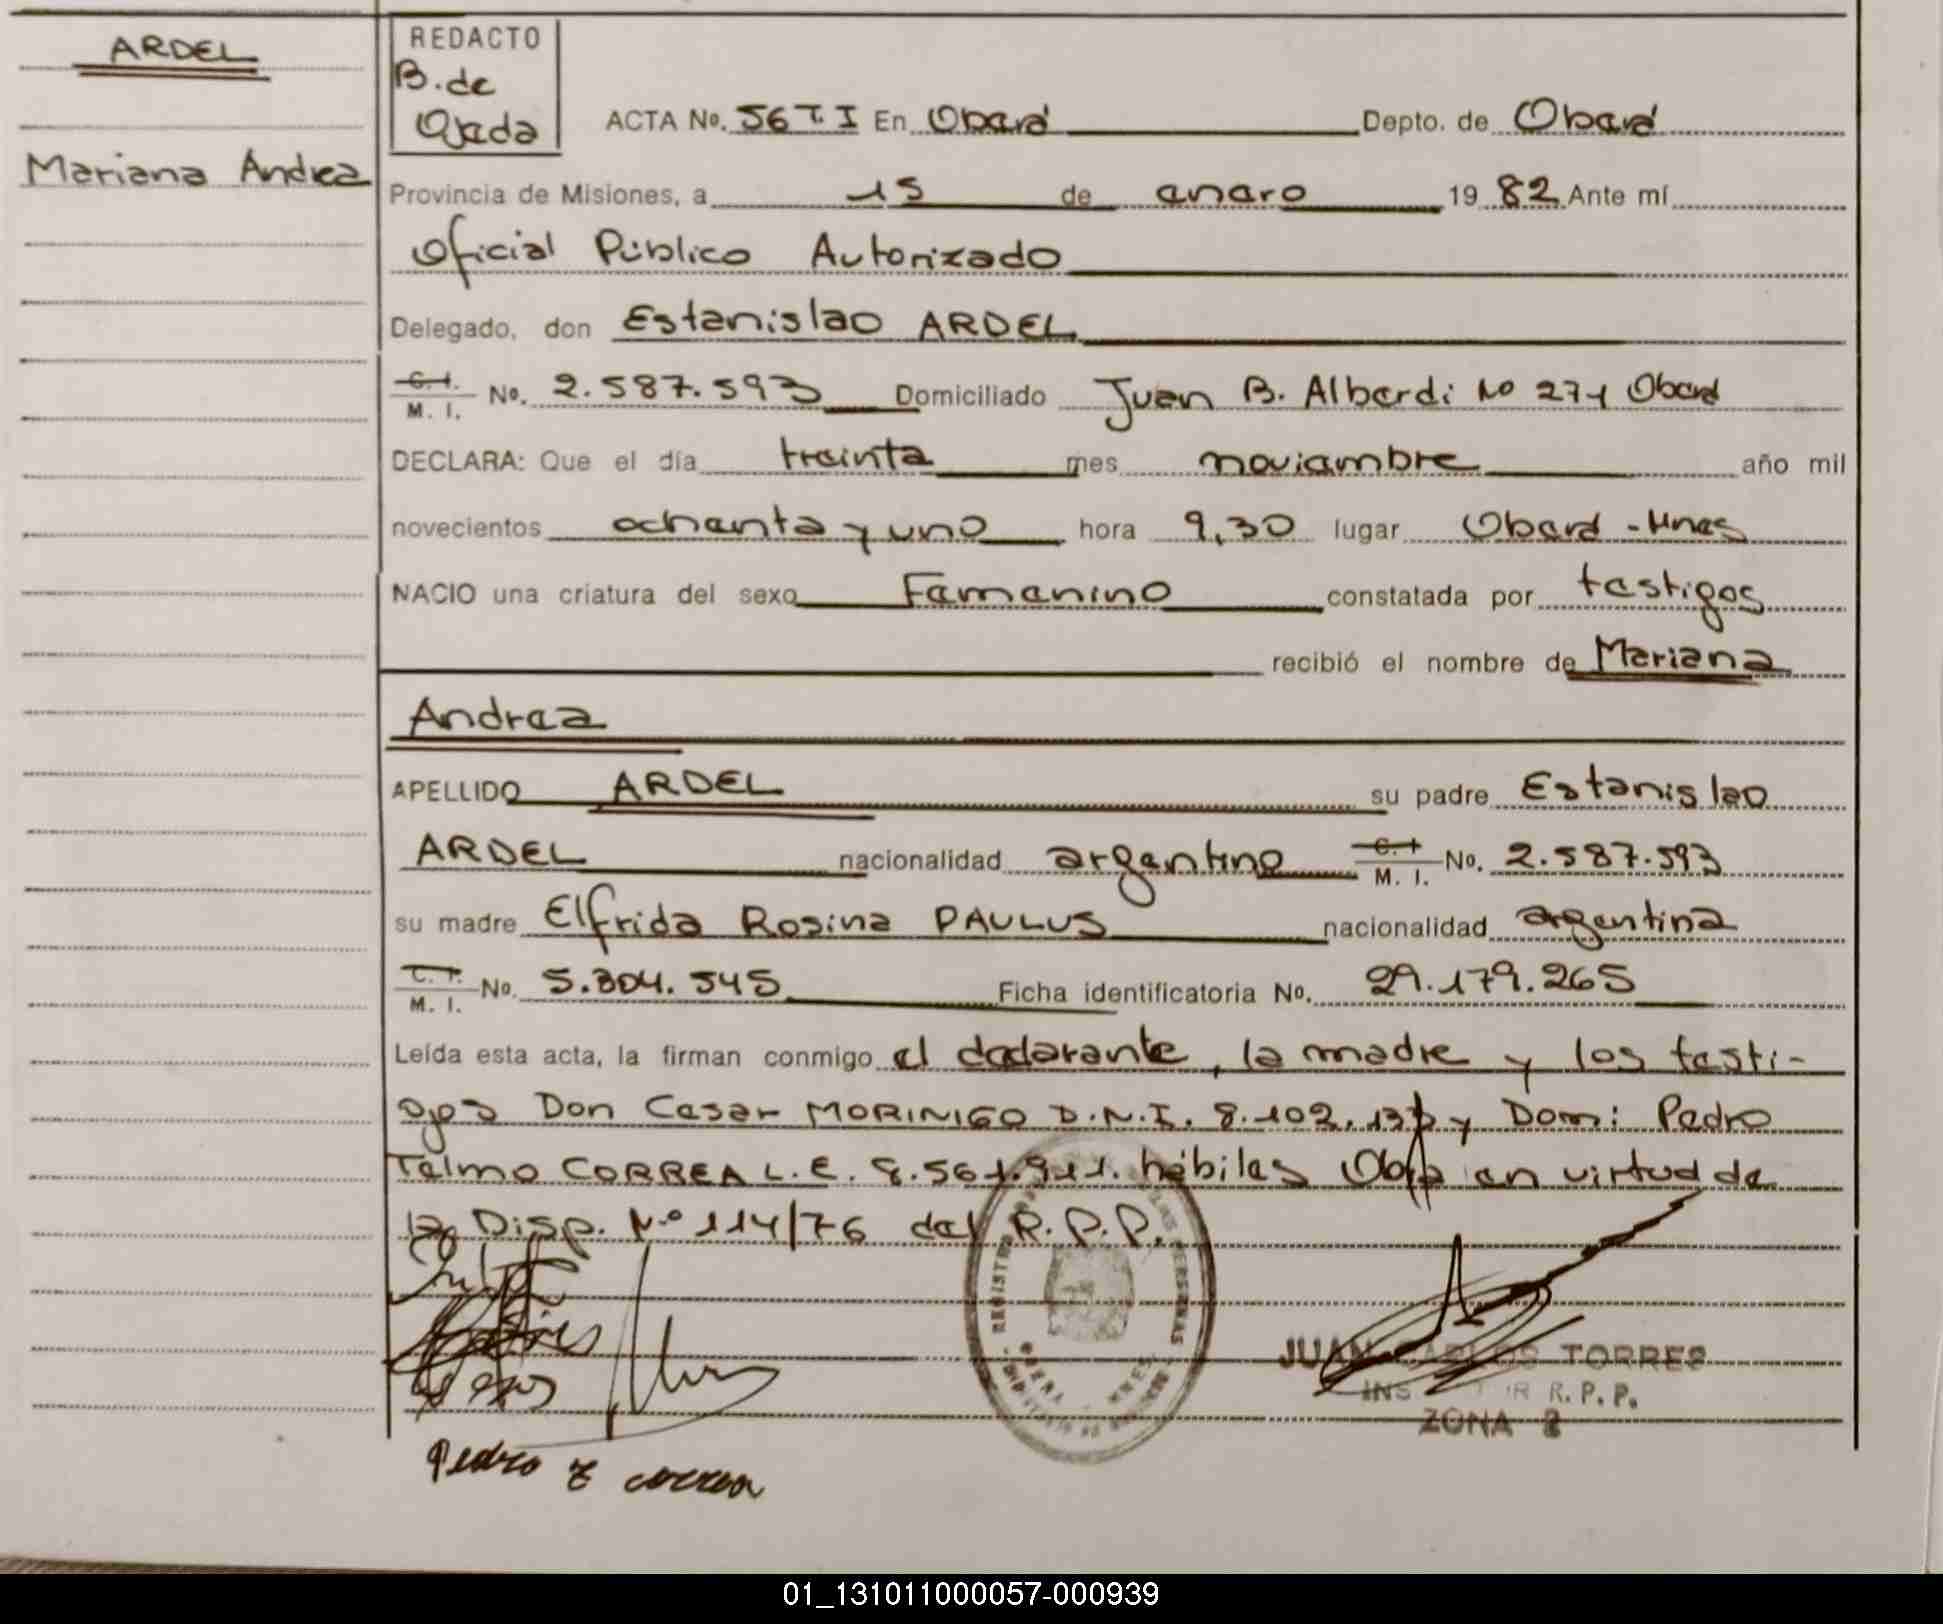 ARDEL
Mariana Andrea
REDACTO
B. de
Ojeda
ACTA No. 56 T. I En Oberá Depto. de Oberá
Provincia de Misiones, a 15 de enero 19 82 Ante mí
Oficial Público Autorizado
Delegado, don Estanislao ARDEL
C. I. M. I. No. 2.587.593 Domiciliado Juan B. Alberdi No 271 Oberá
DECLARA: Que el día treinta mes noviembre año mil
novecientos ochenta y uno hora 9,30 lugar Oberá - Mnes
NACIO una criatura del sexo Femenino constatada por testigos
recibió el nombre de Mariana
Andrea
APELLIDO ARDEL su padre Estanislao
ARDEL nacionalidad argentino C. I. M. I. No. 2.587.593
su madre Elfrida Rosina PAULUS nacionalidad argentina
C. I. M. I. No. 5.304.545 Ficha identificatoria No. 29.179.265
Leída esta acta, la firman conmigo el declarante, la madre y los testi-
gos Don Cesar MORINIGO D.N.I. 8.102. y Dom: Pedro
Telmo CORREA L.E. 8.561.911. hábiles en virtud de
la Disp. N.º 114/76 del R.P.P.
JUAN CARLOS TORRES
R. P. P.
ZONA 2
Pedro T correa
01_131011000057-000939